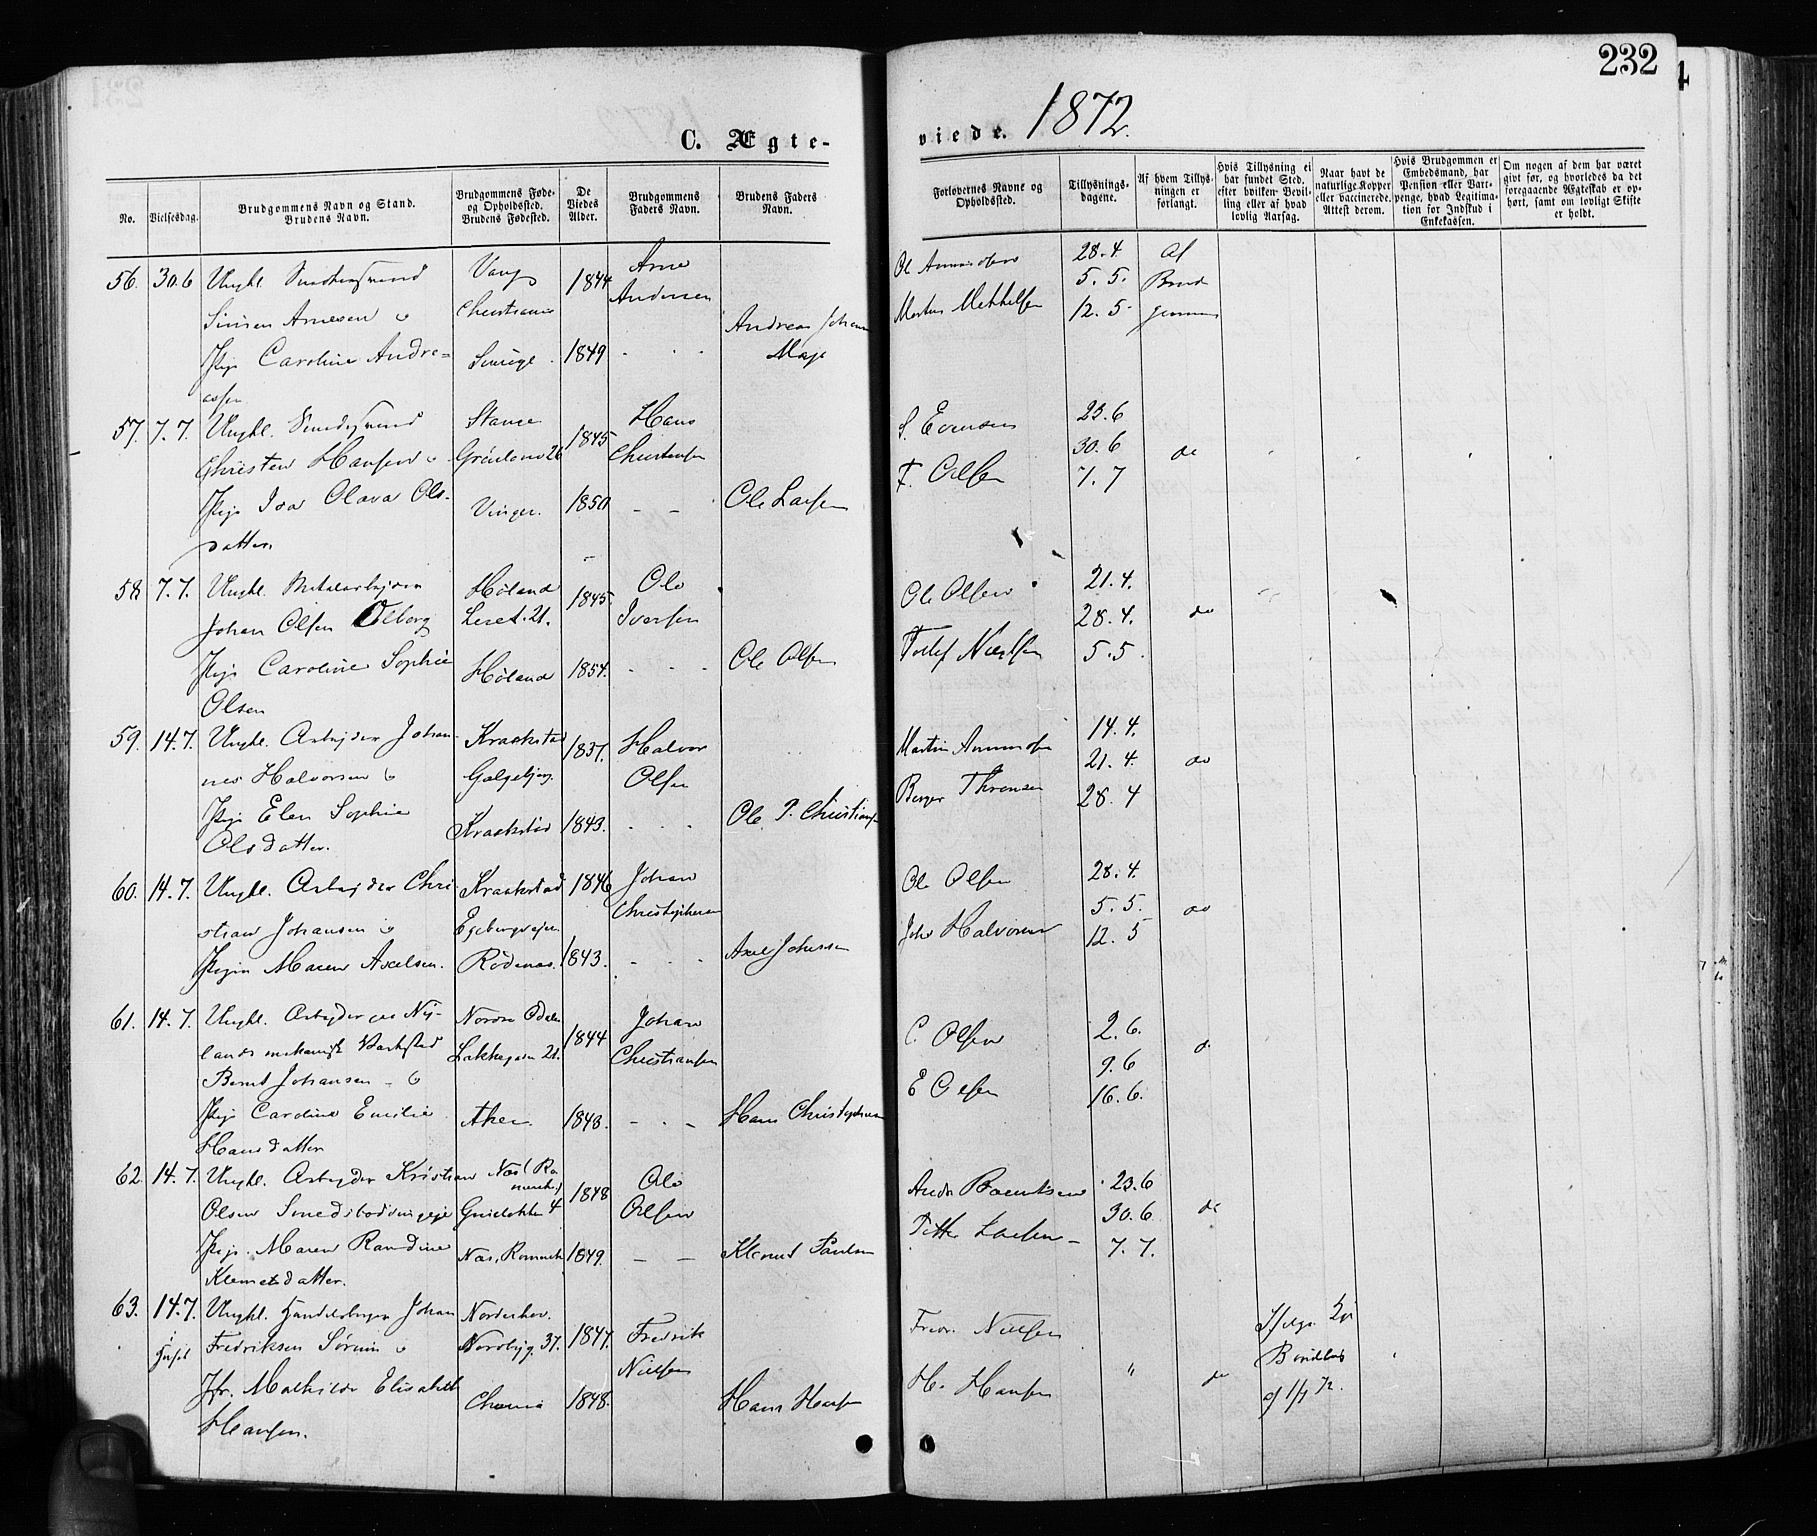 232
1872.
C. Ægte-
viede.
No.
Vielsesdag.
Brudgommens Navn og Stand.
Brudens Navn.
Brudgommens Føde-
og Opholdssted.
Brudens Fødested.
De
Viedes
Alder.
Brudgommens
Faders Navn.
Brudens Faders
Navn.
Forlovernes Navne og
Opholdssted.
Tillysnings-
dagene.
Af hvem Tillys-
ningen er
forlangt.
Hvis Tillysning ei
har fundet Sted,
efter hvilken Bevil-
ling eller af hvad
lovlig Aarsag.
Naar havt de
naturlige Kopper
eller vaccinerede.
Attest derom.
Hvis Brudgommen er
Embedsmand, har
Pension eller Vart-
penge, hvad Legitima-
tion for Indskud i
Enkekassen.
Om nogen af dem har været
givt før, og hvorledes da det
foregaaende Ægteskab er op-
hørt, samt om lovligt Skifte
er holdt.
56. 30.6 Ungkl. Snedkersvend Vang 1844 Arne
Simen Arnesen o Christiania Andersen
Pige Caroline Andre- Sverige. 1849 Andreas Johan
assen Maje
Ole Amundsen 28.4. Af
5.5. Brud
Martin Mekkelsen 12.5 gommen
57. 7.7. Ungkl. Smedesvend Stange 1845 Hans
Christen Hansen o Grønland 26 Christensen
Pige Ida Olava Ols- Vinger. 1850 - - Ole Larsen
datter.
S. Evensen 23.6
30.6 do
F. Olsen 7.7
58 7.7. Ungkl. Metalarbejder Høland 1845. Ole
Johan Olsen Olborg Leret. 21. Iversen
Pige Caroline Sophie Høland 1854. Ole Olsen
Olsen
Ole Olsen 21.4.
28.4. do
Tollef Nielsen 5.5.
59. 14.7. Ungkl. Arbejder Johan- Kraakstad 1837. Halvor
nes Halvorsen o Galgebjerg Olsen
Pige Elen Sophie Kraakstad 1843. Ole P. Christiansen
Olsdatter.
Martin Amundsen 14.4.
21.4. do
Berger Thronsen 28.4
60. 14.7. Ungkl. Arbejder Chri- Kraakstad 1846 Johan
stian Johansen o Egebergvejen Christophersen
Pigen Maren Axelsen. Rødenæs. 1843. Axel Johansen
Ole Olsen 28.4.
5.5. do
Johs Halvorsen 12.5
61. 14.7. Ungkl. Arbejder paa Ny- Nordre Odalen 1844 Johan
lands mekanisk Værksted Lakkegaden 21. Christiansen
Bernt Johansen - o
Pige Caroline Emilie Aker 1848. Hans Christophersen
Hansdatter
C. Olsen 2.6.
9.6 do
E Olsen 16.6.
62. 14.7. Ungkl. Arbejder Kristian Næs (Ro
merike) 1848 Ole
Olsen Smedstadsvingeje 4 Olsen
Pige. Maren Randine Næs, Romerike 1849. - - Klemet Paulsen
Klemetsdatter.
Andr Berntsen 23.6
30.6 do
Petter Larsen - 7.7.
63. 14.7. Ungkl. Handelsborger Johan Norderhov. 1847. Fredrik
i Fredriksen Sørum o Nordbyg. 37. Nielsen
Huset
Jfr. Mathilde Elisabeth Chania 1848. Hans Hansen
Hansen.
Fredr. Nielsen Ifølge Kgl
" do Bevilling
H. Hansen af 1/7 72.